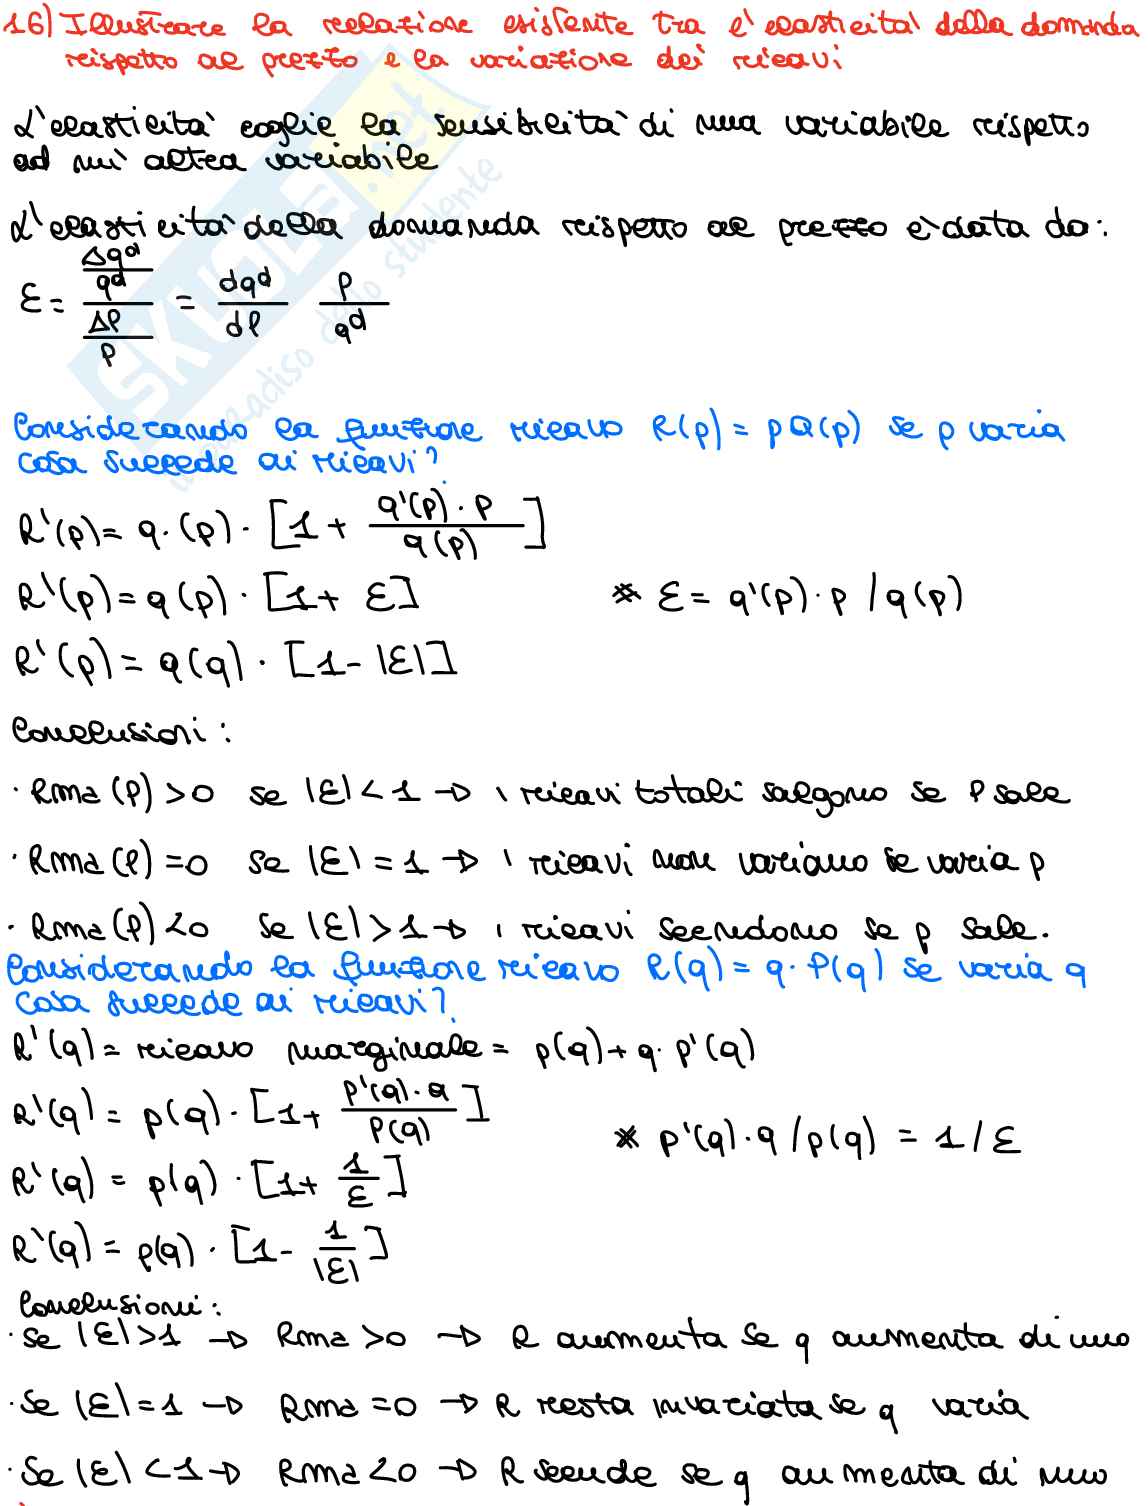 16) Illustrare la relazione esistente tra l'elasticità della domanda
rispetto al prezzo e la variazione dei ricavi
L'elasticità coglie la sensibilità di una variabile rispetto
ad un'altra variabile
L'elasticità della domanda rispetto al prezzo è data da:
ε = (Δq^d / q^d) / (Δp / p) = dq^d / dp · p / q^d
Considerando la funzione ricavo R(p) = p Q(p) se p varia
cosa succede ai ricavi?
R'(p) = q·(p) · [1 + q'(p)·p / q(p)]
R'(p) = q(p) · [1 + ε] * ε = q'(p)·p / q(p)
R'(p) = q(q) · [1 - |ε|]
Conclusioni:
· Rma (p) > 0 se |ε| < 1 → i ricavi totali salgono se p sale
· Rma (p) = 0 se |ε| = 1 → i ricavi non variano se varia p
· Rma (p) < 0 se |ε| > 1 → i ricavi scendono se p sale.
Considerando la funzione ricavo R(q) = q · P(q) se varia q
cosa succede ai ricavi?
R'(q) = ricavo marginale = p(q) + q · p'(q)
R'(q) = p(q) · [1 + p'(q)·q / p(q)] * p'(q)·q / p(q) = 1/ε
R'(q) = p(q) · [1 + 1/ε]
R'(q) = p(q) · [1 - 1/|ε|]
Conclusioni:
· Se |ε| > 1 → Rma > 0 → R aumenta se q aumenta di uno
· Se |ε| = 1 → Rma = 0 → R resta invariata se q varia
· Se |ε| < 1 → Rma < 0 → R scende se q aumenta di uno
SKUOLA.net
il paradiso dello studente